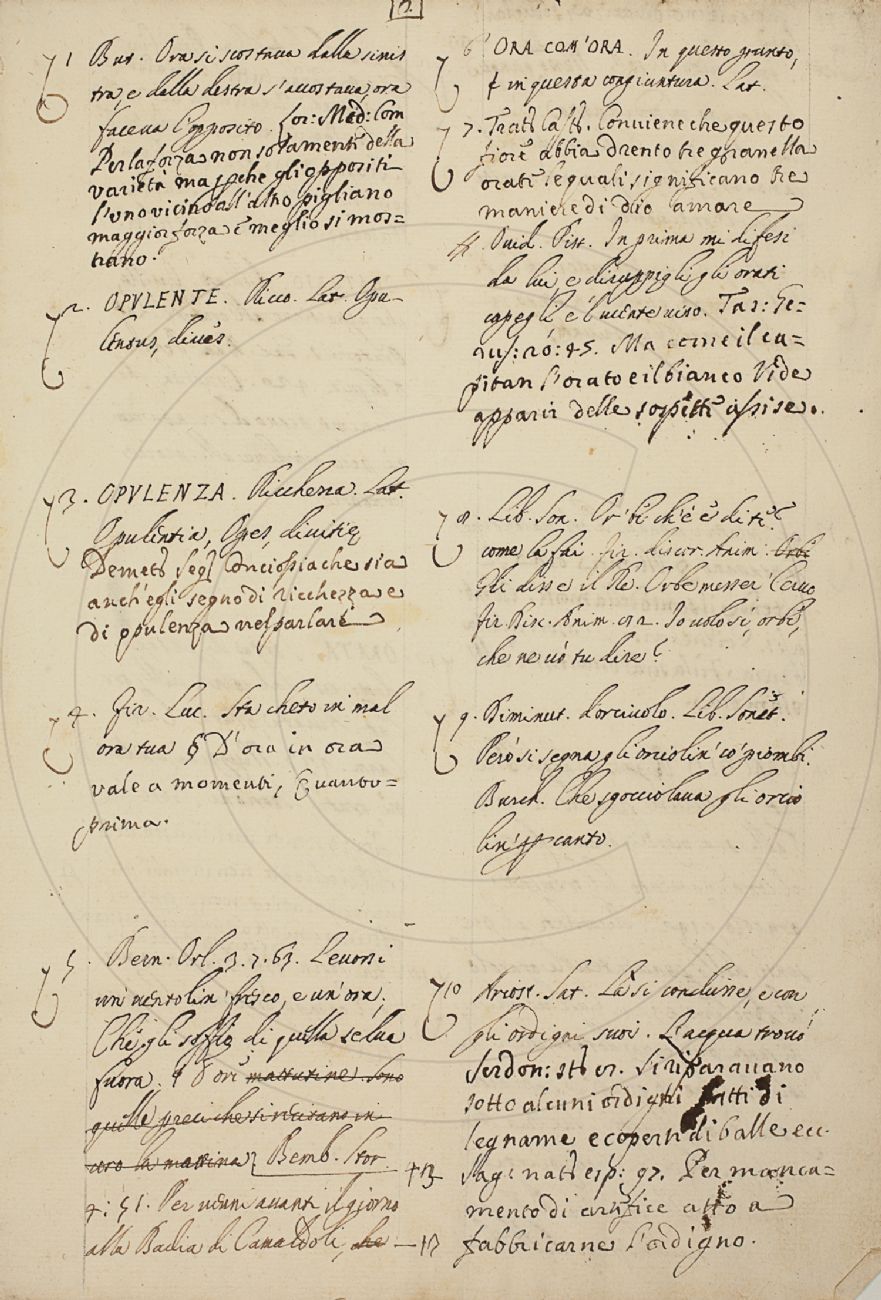 2.
1 But. Ora si scostava dalla sinis
tra, e dalla destra s'accostava, ora
faceva l'opposito. for: Med: Com
Per la forza non solamente della
varietà ma perche gli oppositi
l'uno vicino all'altro pigliano
maggior forza e meglio si mos=
trano.
2. OPVLENTE. Ricco. Lat. Opu-
lentus, dives.
3. OPVLENZA. Ricchezza. Lat.
Opulentia, Opes, divitię
Demetr Segn Conciossiache sia
anch'egli segno di ricchezza e
di opulenza nel parlare
4. fir. Luc. Sta cheto in mal
ora tua D'ora in ora
vale a momenti, Quanto
prima.
5. Bern. Orl. 3. 7. 63. Levossi
un ventolin' fresco, e un'ora,
Che gli soffia di quella selva
fuora. ore mattutine sono
quelle preci che si recitano in
coro la mattina Bemb. Stor.
4: 51. Per venire avanti il giorno
alla Badia di Camaldoli, che
6 ORA COM'ORA. In questo punto,
in questa congiuntura. Lat.
7. Tratt Cast. Conviene che questo
fiore abbia drento tre granella
orate le quali significano tre
maniere di Dio amare
Ovid. Pist. In prima mi difesi
da lui, e gli orati
capegli e 'l lucente viso. Tas: Ge-
rus: 20: 45. Ma come il ca=
pitan l'orato e il bianco Vide
apparir delle sospette assise.
8. Lib. Son. Or be ch'è è di te
come la fai. fir. discor. Anim. Orbe
Gli disse il Re. Orbe messer lo
fir. Disc. Anim. 92. Io volo sì, orbè,
che ne vo' tu dire?
9. Diminut. d'orciuolo. Lib. Sonet.
Però si segna gli orciolin' co' piombi.
Burch. Che sgocciolava gli orcio
lin' canto.
10 Ariost. Sat. Là si condusse, e con
gli ordigni suoi. L'acqua trovò
Serdon: str 17. Si riparavano
sotto alcuni ordigni fatti di
legname e coperti di balle ecc.
13 Sag: nat: esp: 97. Per manca=
mento di artefice atto a
17 fabbricarne l'ordigno.